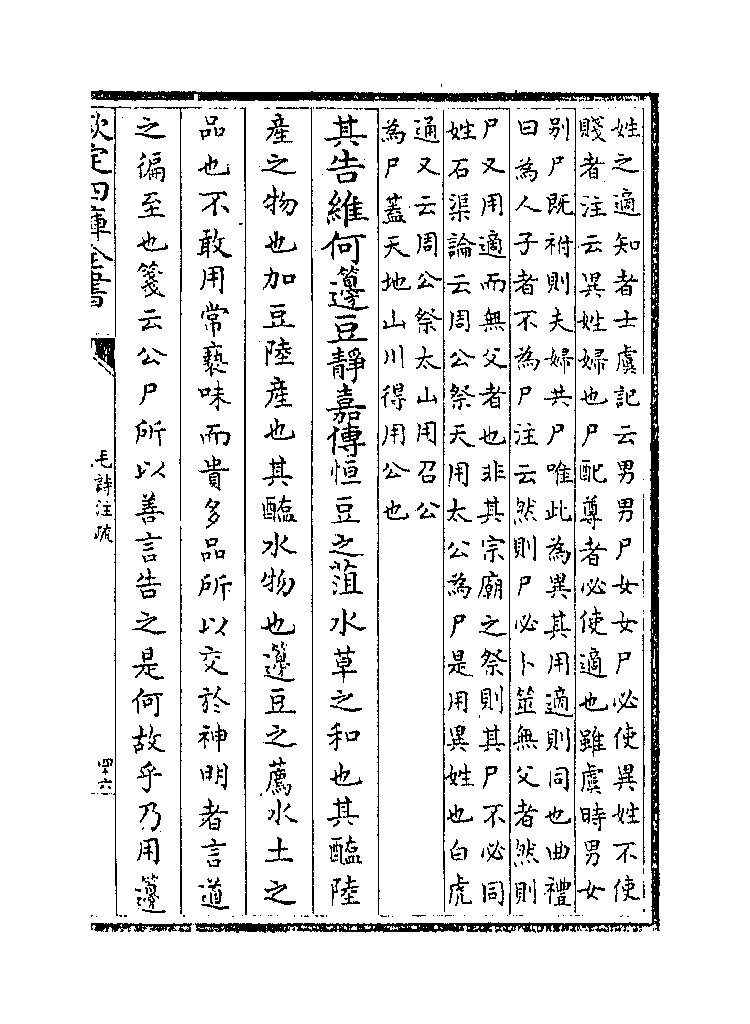 姓之適知者士虞記云男男尸女女尸必使異姓不使
賤者注云異姓婦也尸配尊者必使適也雖虞時男女
别尸既祔則夫婦共尸唯此為異其用適則同也曲禮
曰為人子者不為尸注云然則尸必卜筮無父者然則
尸又用適而無父者也非其宗廟之祭則其尸不必同
姓石渠論云周公祭天用太公為尸是用異姓也白虎
通又云周公祭太山用召公
為尸蓋天地山川得用公也
其告維何籩豆靜嘉傳恒豆之菹水草之和也其醢陸
產之物也加豆陸產也其醢水物也籩豆之薦水土之
品也不敢用常䙝味而貴多品所以交於神明者言道
之徧至也箋云公尸所以善言告之是何故乎乃用籩
欽定四庫全書
毛詩注疏
四十六